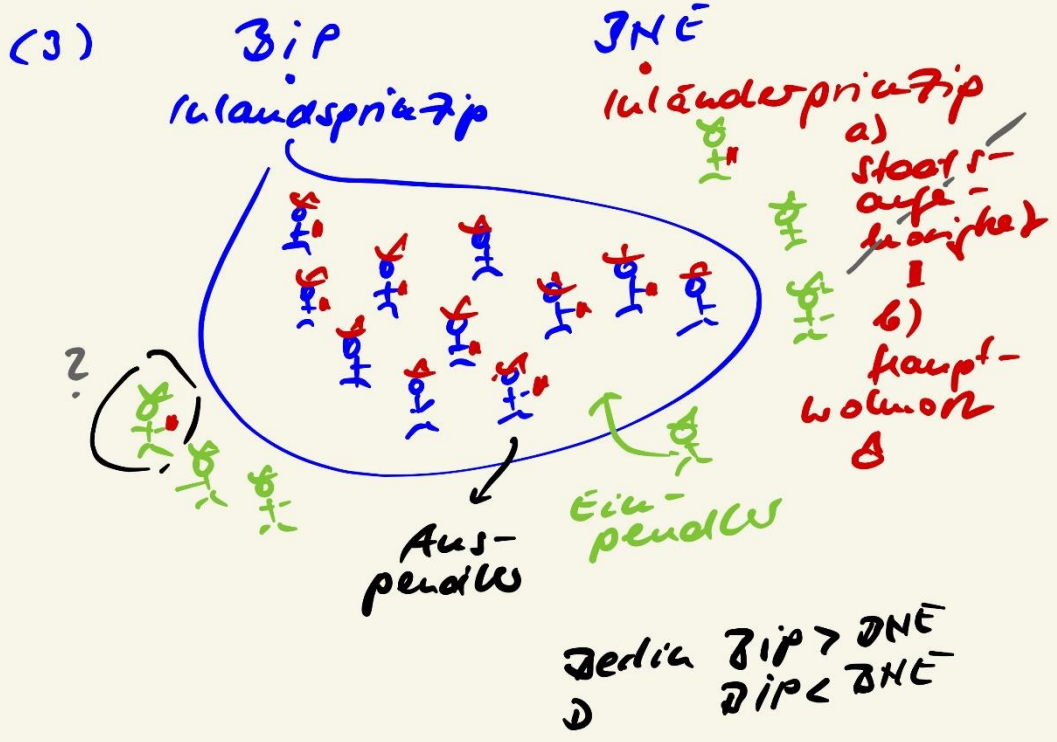 (3) BiP BNE
Inlandsprinzip Inländerprinzip
a)
Staats-
ange-
hörigkeit
b)
Haupt-
wohnort
?
Ein-
pendler
Aus-
pendler
Berlin BiP > BNE
D BiP < BNE